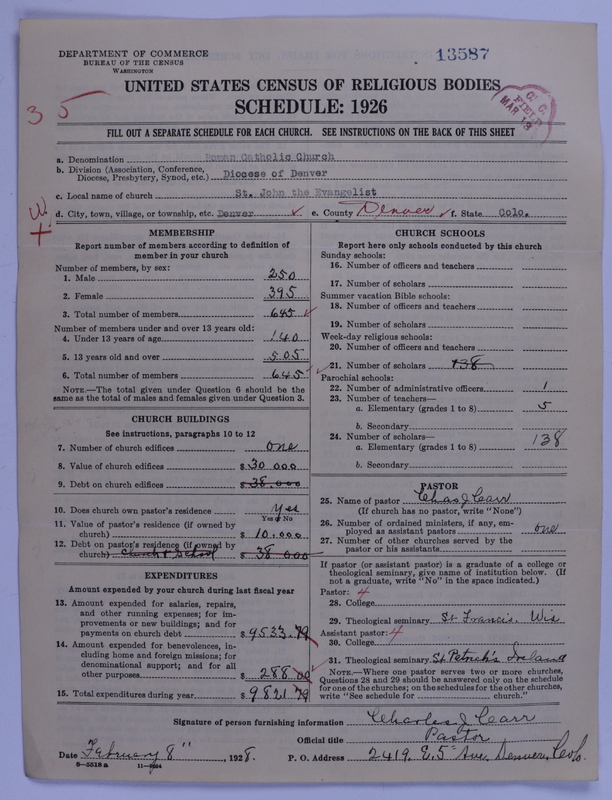 DEPARTMENT OF COMMERCE
BUREAU OF THE CENSUS
WASHINGTON
13587
UNITED STATES CENSUS OF RELIGIOUS BODIES
SCHEDULE: 1926
35
FIELD
MAR 19
FILL OUT A SEPARATE SCHEDULE FOR EACH CHURCH. SEE INSTRUCTIONS ON THE BACK OF THIS SHEET
a. Denomination Roman Catholic Church
b. Division (Association, Conference, Diocese, Presbytery, Synod, etc.) Diocese of Denver
c. Local name of church St. John the Evangelist
d. City, town, village, or township, etc. Denver e. County Denver f. State Colo.
MEMBERSHIP
Report number of members according to definition of
member in your church
Number of members, by sex:
1. Male 250
2. Female 395
3. Total number of members 645
Number of members under and over 13 years old:
4. Under 13 years of age 140
5. 13 years old and over 505
6. Total number of members 645
NOTE.—The total given under Question 6 should be
same as the total of males and females given under Question 3.
CHURCH BUILDINGS
See instructions, paragraphs 10 to 12
7. Number of church edifices one
8. Value of church edifices $30 000
9. Debt on church edifices $38.000
10. Does church own pastor's residence Yes
Yes or No
11. Value of pastor's residence (if owned by
church) $10,000
12. Debt on pastor's residence (if owned by
church) Church & School $38 000
EXPENDITURES
Amount expended by your church during last fiscal year
13. Amount expended for salaries, repairs,
and other running expenses; for im-
provements or new buildings; and for
payments on church debt $9533.79
14. Amount expended for benevolences, in-
cluding home and foreign missions; for
denominational support; and for all
other purposes $288.00
15. Total expenditures during year $9821 79
CHURCH SCHOOLS
Report here only schools conducted by this church
Sunday schools:
16. Number of officers and teachers
17. Number of scholars
Summer vacation Bible schools:
18. Number of officers and teachers
19. Number of scholars
Week-day religious schools:
20. Number of officers and teachers
21. Number of scholars 138
Parochial schools:
22. Number of administrative officers 1
23. Number of teachers—
a. Elementary (grades 1 to 8) 5
b. Secondary
24. Number of scholars—
a. Elementary (grades 1 to 8) 138
b. Secondary
PASTOR
25. Name of pastor Chas J Carr
(If church has no pastor, write "None")
26. Number of ordained ministers, if any, em-
ployed as assistant pastors one
27. Number of other churches served by the
pastor or his assistants
If pastor (or assistant pastor) is a graduate of a college or
theological seminary, give name of institution below. (If
not a graduate, write "No" in the space indicated.)
Pastor: 4
28. College
29. Theological seminary St Francis, Wis
Assistant pastor: 4
30. College
31. Theological seminary St Patrick's Ireland
NOTE.—Where one pastor serves two or more churches,
Questions 28 and 29 should be answered only on the schedule
for one of the churches; on the schedules for the other churches,
write "See schedule for church."
Signature of person furnishing information Charles J Carr
Official title Pastor
Date February 8", 1928. P. O. Address 2419 E. 5" Ave. Denver, Colo.
8-5518 a